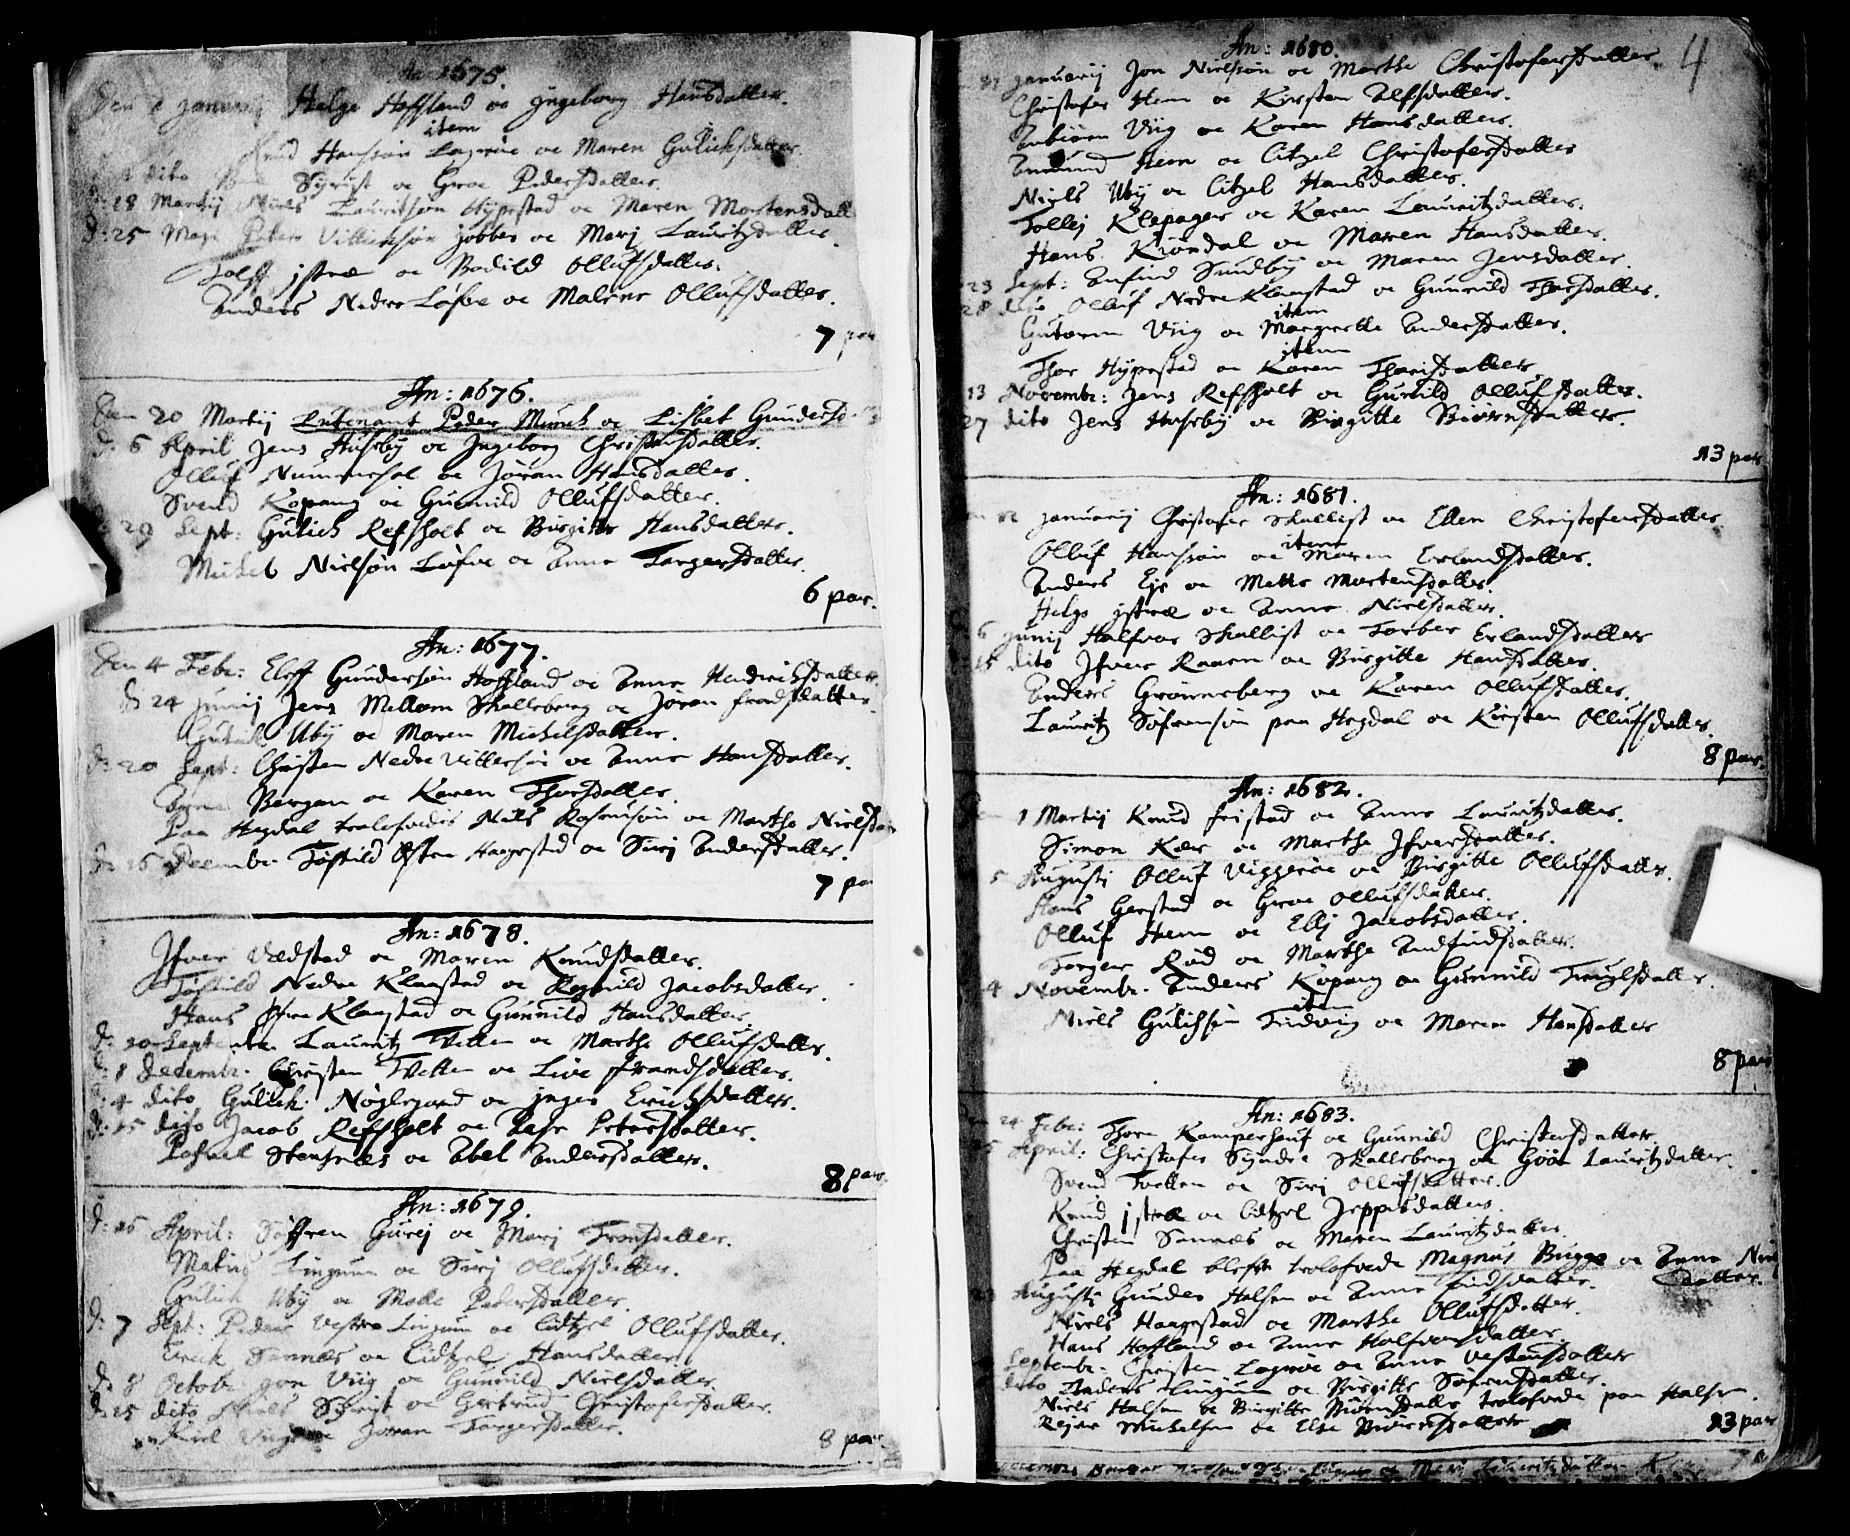 An: 1675.
Den januarij Helge Hoffland oc Jngeborg Hansdatter.
item
Knud Hanssøn Lagerøe oc Maren Gulichsdatter.
dito Syrist oc Groe Pedersdatter.
d: 18 Martij Niels Lauritsøn Hypestad oc Maren Mortensdatt
d: 25 Maji Peter Villichsøn Jobber oc Marj Lauritzdatter.
Rolff jstræ oc Bodild Ollufsdatter.
Anders Nedre Løfve oc Malene Ollufsdatter.
7 par
An: 1676.
Den 20 Martij Lutenant Peder Munch oc Lisbet Gundersd
d: 6 April Jens Husebÿ oc Jngeborg Christensdatter.
Olluf Nummerhol oc Jøran Hansdatter.
Svend Kopang oc Gunnild Ollufsdatter.
29 Sept: Gulich Refsholt oc Birgitte Hansdatter.
Michel Nielsøn Løfve oc Anne Torgersdatter.
6 par.
An: 1677.
Den 4 Febr: Eloff Gundersøn Hoffland oc Anne Hendrichsdatter.
d 24 junij Jens Mellom Skallsberg oc Jøran frandsdatter.
Gulich Ubÿ oc Maren Michelsdatter.
d: 20 Sept: Christen Nedre Vittersøn oc Anne Hansdatter.
Arne Bergan oc Karen Thorsdatter.
Paa Hegdal trolofvedis Niels Rasmusøn oc Marthe Nielsdat
d: 16 Decembr. Tostild Østre Haagestad oc Sirj Andersdatter.
7 par
An: 1678.
Jfver Vedstad oc Maren Knudsdatter.
Tostild Nedre Klaastad oc Ragnild Jacobsdatter.
Hans Øfre Klaastad oc Gunnild Hansdatter.
d: 20 Septembr. Lauritz Tvetten oc Marthe Ollufsdatter.
d: 8 Decembr. Christen Tvetten oc Live frandsdatter.
4 dito Gulich Nøglegaard oc jnger Erichsdatter.
d: 15 dito Jacob Refsholt oc Aase Petersdatter.
Pofvel Stensnæs oc Abel Andersdatter.
8 par.
An: 1679.
d: 16 April: Søfren Gurej oc Marj Fransdatter.
Matis Lingum oc Sirj Ollufsdatter.
Gulich Ubÿ oc Mette Pedersdatter.
d: 7 Sept: Peder Vestre Lingum oc Cidtzel Ollufsdatter.
Erich Sannæs oc Cidtzel Hansdatter.
d: 8 Octobr Jon Viig oc Gunnild Nielsdatter.
d: 15 dito Niels Syrist oc Gertrud Christofersdatter.
Jøran Torgersdatter.
8 par
4
An: 1680.
januarij Jon Nielssøn oc Marthe Christofersdatter.
Christofer Hem oc Kirsten Alfsdatter.
Anbiøn Viig oc Karen Hansdatter.
Amund Hem oc Citzel Christofersdatter
Niels Ubÿ oc Citzel Hansdatter.
Tollej Klepager oc Karen Lauritzdatter.
Hans Krøndal oc Maren Hansdatter.
23 Sept: Anfind Sundbÿ oc Maren Jensdatter.
28 dito Olluf Nedre Klaastad oc Gunnild Thorsdatter.
item
Gutorm Viig oc Margrette Andersdatter.
item
Thor Hypestad oc Karen Thorisdatter.
13 Novembr: Jens Refsholt oc Gunild Ollufsdatter.
27 dito Jens Husebÿ oc Birgitte Biørnsdatter.
13 par
An: 1681.
januarij Christofer Skallist oc Ellen Christofersdatter
item
Olluf Hanssøn oc Maren Erlandsdatter.
Anders Eje oc Mette Mortensdatter.
Helge jstræ oc Anne Nielsdatter.
6 junij Halfvor Skallist oc Torber Erlandsdatter
15 dito Jfver Raaem oc Birgitte Hansdatter.
Anders Grønneberg oc Karen Ollufsdatter.
Lauritz Søfrensøn paa Hegdal oc Kirsten Ollufsdatter.
8 par.
An: 1682.
1 Martij Knud fristad oc Anne Lauritzdatter.
Simon Kær oc Marthe Jfversdatter.
5 Augusti Olluf Viggerøe oc Birgitte Ollufsdatter.
Hans Gierstad oc Groe Ollufsdatter.
Olluf Hem oc Ellj Jacobsdatter.
Torger Rød oc Marthe Andfindsdatter.
4 Novembr. Anders Kopang oc Gunnild Trugelsdatter.
item
Niels Gulichsøn Tudvig oc Maren Hansdatter
8 par
An: 1683.
24 Febr: Thore Kamperhouf oc Gunnild Christensdatter.
April: Christofer Syndre Skallsberg oc Goe Lauritzdatter.
Svend Tvetten oc Sirj Ollufsdatter.
Knud jstræ oc Cidtzel Jeppesdatter.
Christen Sannæs oc Maren Lauritzdatter.
Paa Hegdal blefve trolofvede Magnus Bugge oc Anne Niels
datter.
Augusti Gunder Halsen oc Anne Eridsdatter.
Niels Haagestad oc Marthe Ollufsdatter.
Hans Hoffland oc Anne Halfvorsdatter.
Septembr: Christen Lagerøe oc Anne Vestensdatter
dito Anders Lingum oc Birgitte Søfrensdatter.
Niels Halsen oc Birgitte Biørnsdatter trolofvede paa Halsen.
Rejer Michelsen oc Else Biørnsdatter
13 par